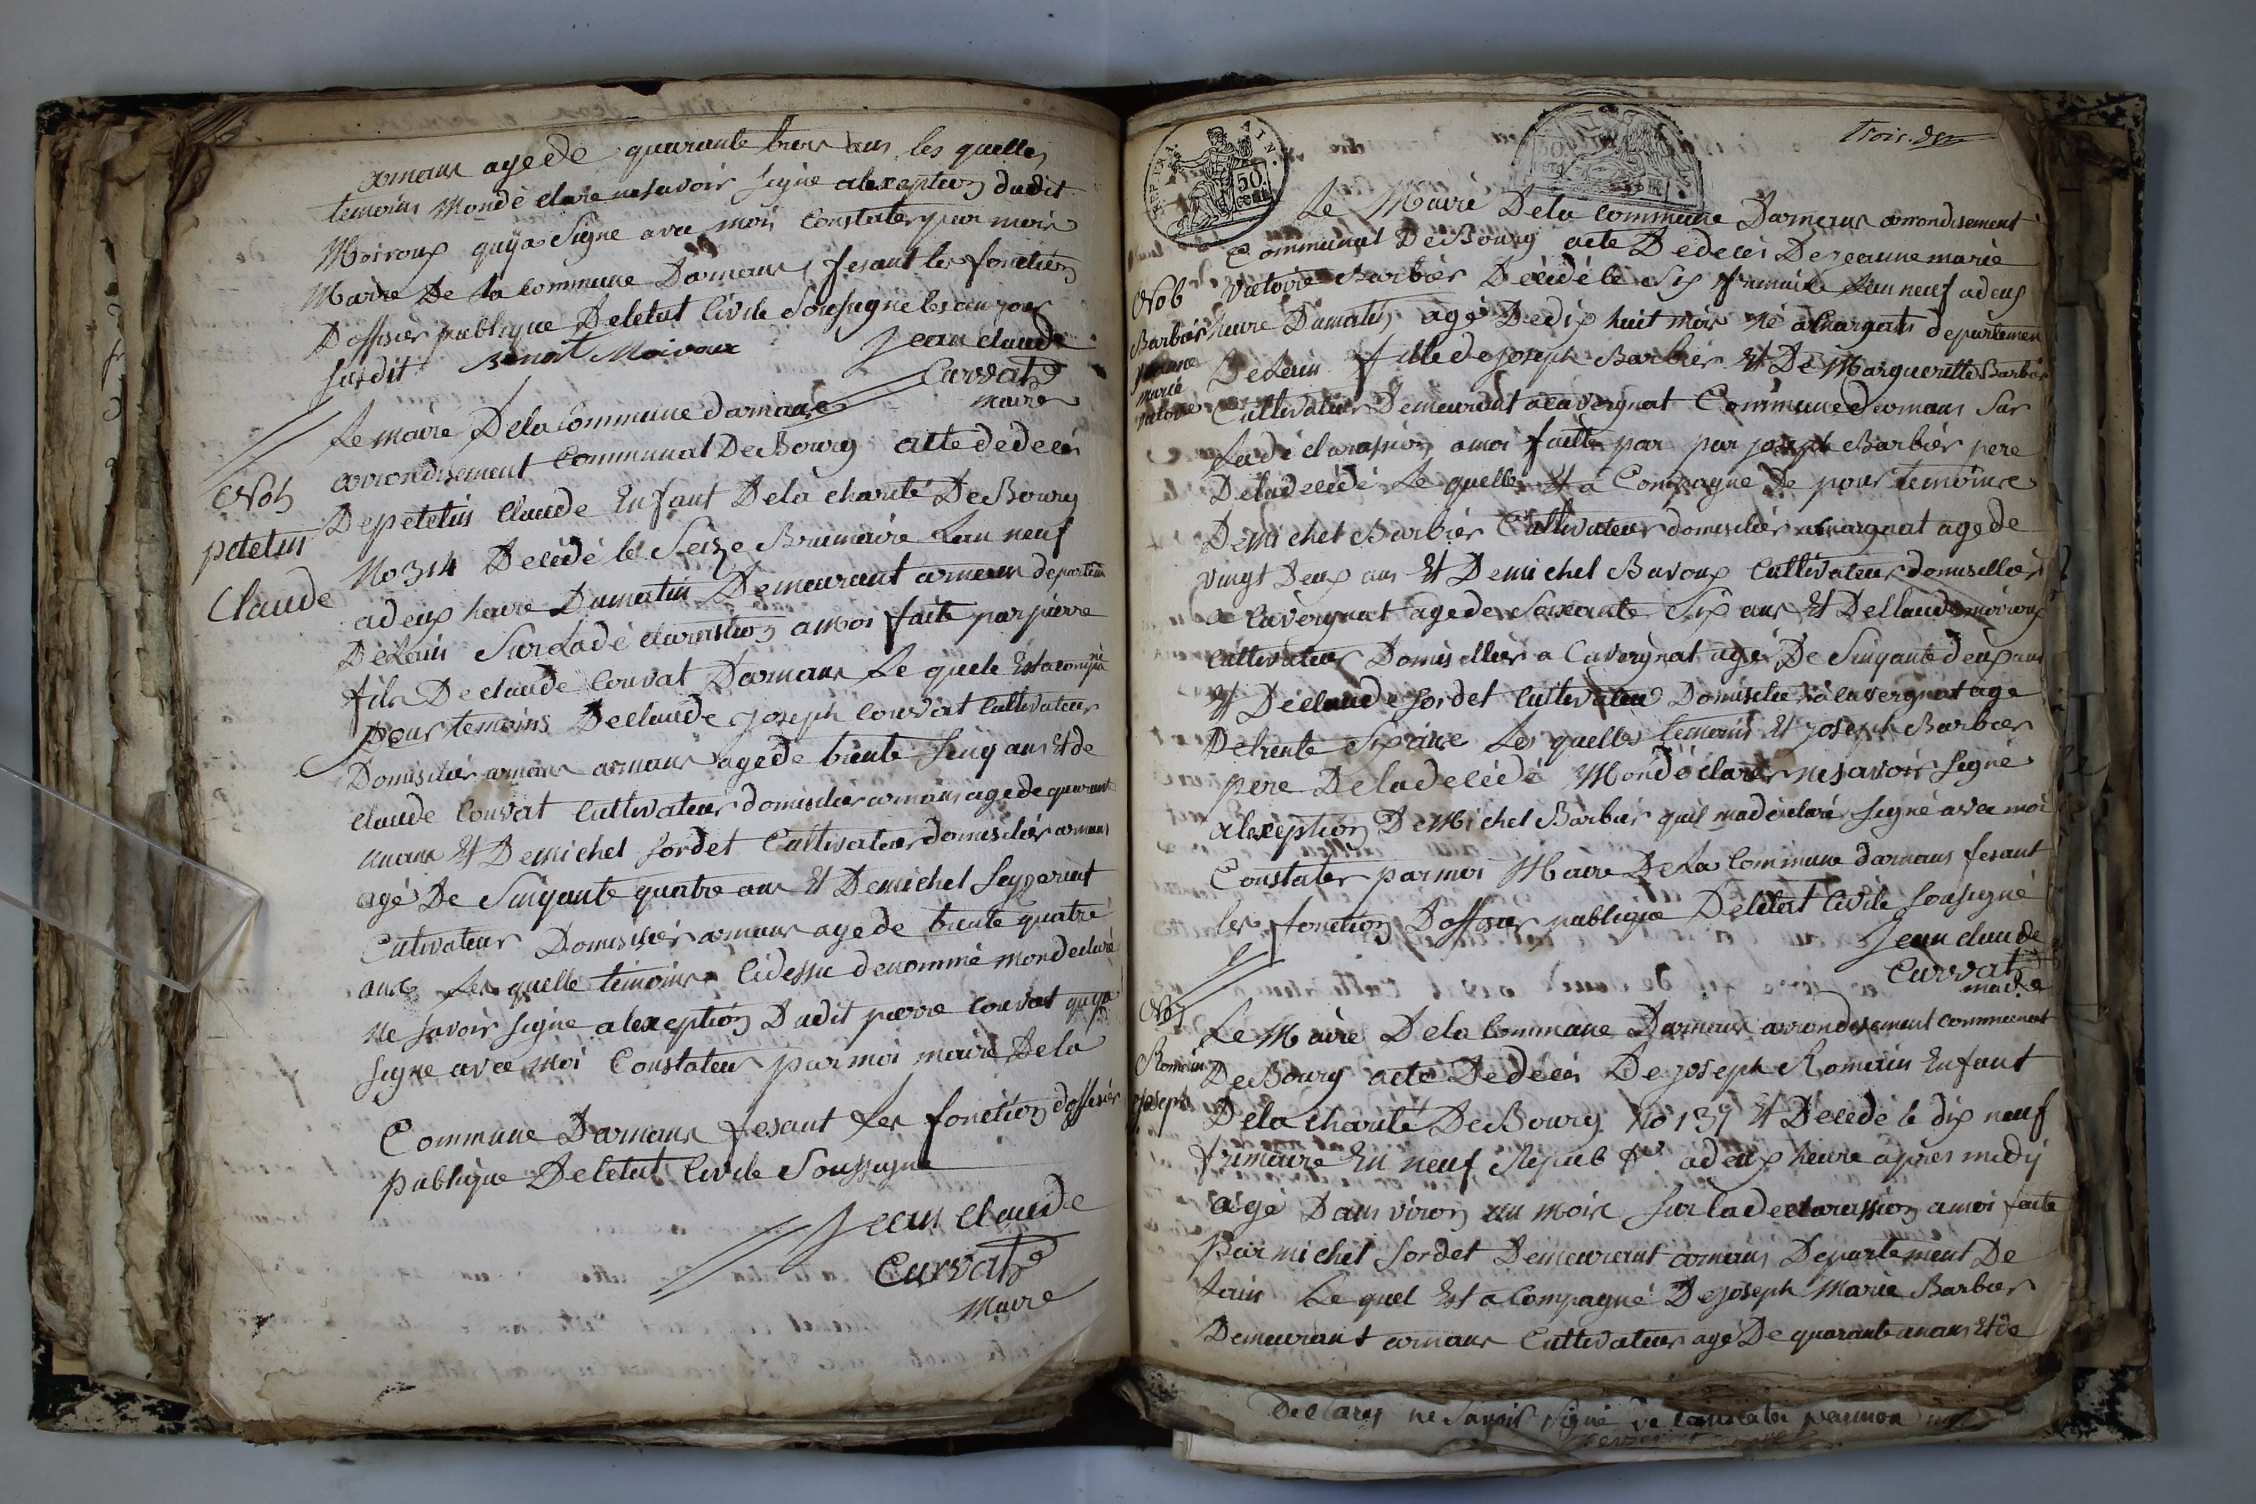 armans agede quarante trois ans les quelles
temoins monde clare nesavoir signe alexeption dudit
Moiroux quya Signe avec moi Constater par moi
Maire De la commune Darmans fesant les fonction
Doffisier publique Deletat Civile Sousigne les an jour
susdit Benoit Moiroux Jean Claude
Curvat
maire
Le maire Dela commune darmans
arrondisement Communal De Bourg acte de deces
No 5
petetin
Claude
De petetin Claude Enfant Dela charité De Bourg
No 314 Décédé le Seize Brumaire Lan neuf
a deux heure Dumatin Demeurant armans departem
De Lain Sur La dé claration a moi faite par pierre
fils De claude Couvat Darmans Le quele Est acompagné
pour temoins De claude joseph Couvat Cultivateur
Domisilier armans agede trente Sinq ans Et de
claude Couvat Cultivateur domisilier armans agede quarant
un ans Et De michel Sordet Cultivateur domisilier armans
agé De Sinquante quatre ans Et De michel
Cultivateur Domisilier armans agede trente quatre
ans Les quelle temoins Cidessu denommé mon declaré
ne savoir signe alexeption Dudit pierre Couvat quya
signe avec moi Constater par moi maire De la
Commune Darmans fesant Les fonction doffisier
publique Deletat Civile Soussigne
Jean Claude
Curvat
Maire
trois
REP. FRA.
AIN.
50.
cent.
Le Maire Dela commune Darmans arrondisement
Communal De Bourg acte De deces De jeanne marie
No 6
Barbier
jeanne
marie
victoire
Victoire Barbier Décédé le Six frimaire Lan neuf a deux
heure Dumatin agé De dix huit mois né a departemen
De Lain fille de joseph Barbier Et De Margueritte Barbier
Cultivateur Demeurant a Cavergnat Commune darmans Sur
La dé clarassion a moi faitte par par joseph Barbier pere
Dela décédé Le quelle Et a Compagne De pour temoins
De michel Barbier Cultivateur domisilier agede
vingt Deux ans Et De michel Bavoux Cultivateur domisillier
a Cavergnat agede Soixante Six ans Et De Claude moiroux
Cultivateur Domisillier a Cavergnat agé De Sinquante deux ans
Et De claude Sordet Cultivateur Domisilie a Cavergnat age
De trente Les quelles temoins Et joseph Barbier
pere Dela décédé Mon dé clarer nesavoir signe
alexeption De Michel Barbier quil ma déclaré signé avec moi
Constater par moi Maire De La Commune darmans fesant
les fonction Doffisier publique Deletat Civile Sousigné
Jean Claude
Curvat
maire
No 7
Romain
joseph
Le Maire Dela Commune Darmans arrondisement communal
De Bourg acte De deces De joseph Romain Enfant
Dela charité De Bourg No 137 Et Décédé le dix neuf
frimaire En neuf Repub a deux heure apres midy
agé Danviron un mois Sur la declarassion a moi faite
par michel Sordet Demeurant armans Departement De
Lain Le quel Est a Compagné De joseph Marie Barbier
Demeurant armans Cultivateur agé De quarante un ans Et de
Declarer ne Savoir Signé